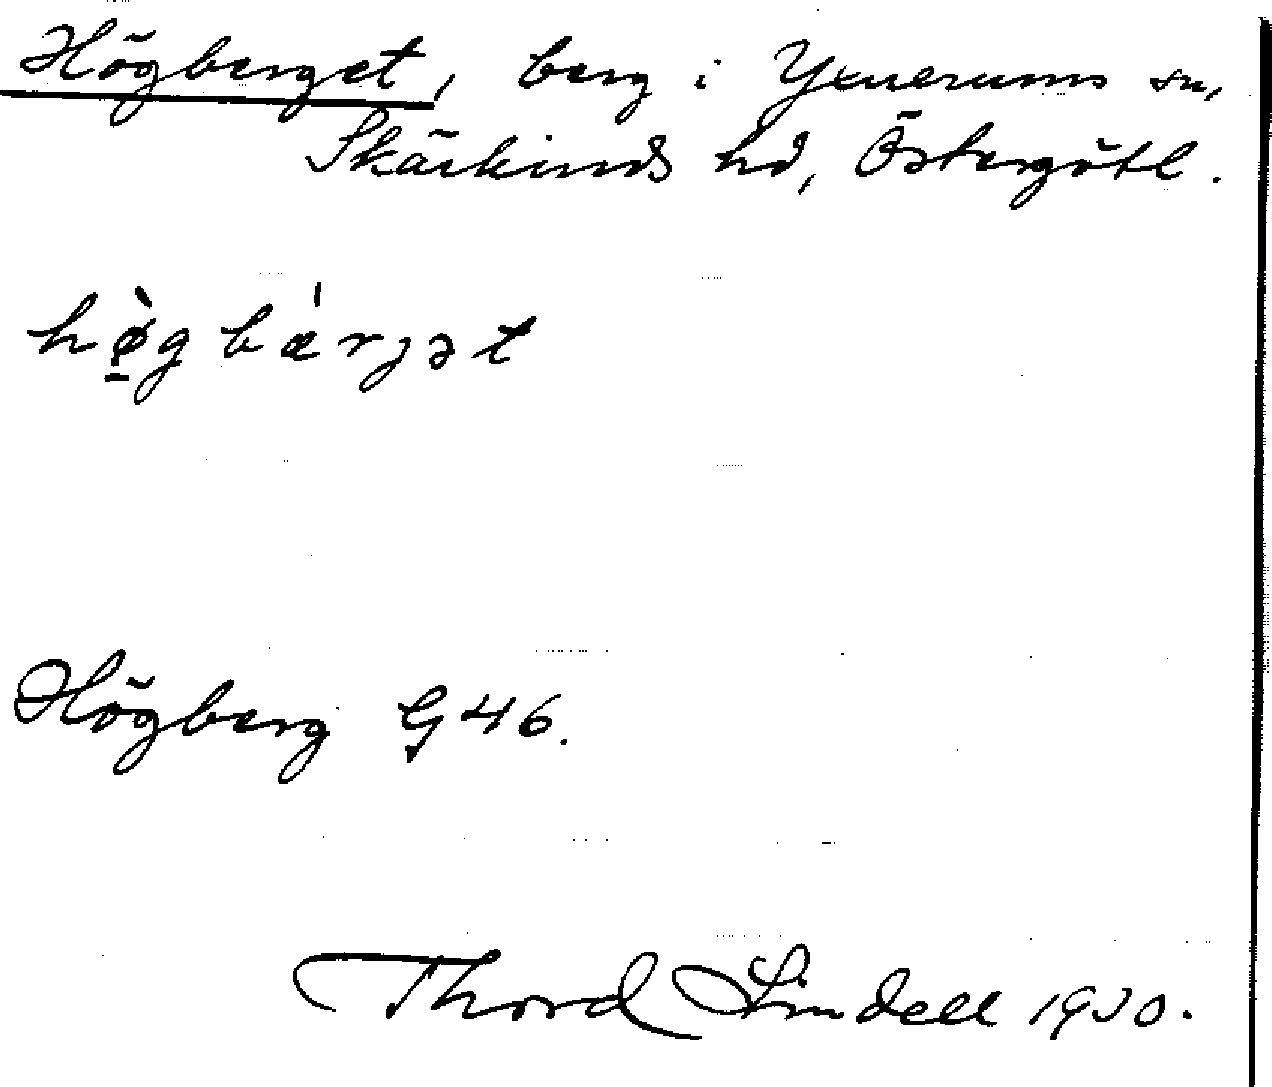 Högberget, berg i Yxnerums sn,
Skärkinds hd, Östergötl.
hø̀gbǽrjət
Högberg G 46.
Thord Lindell 1930.